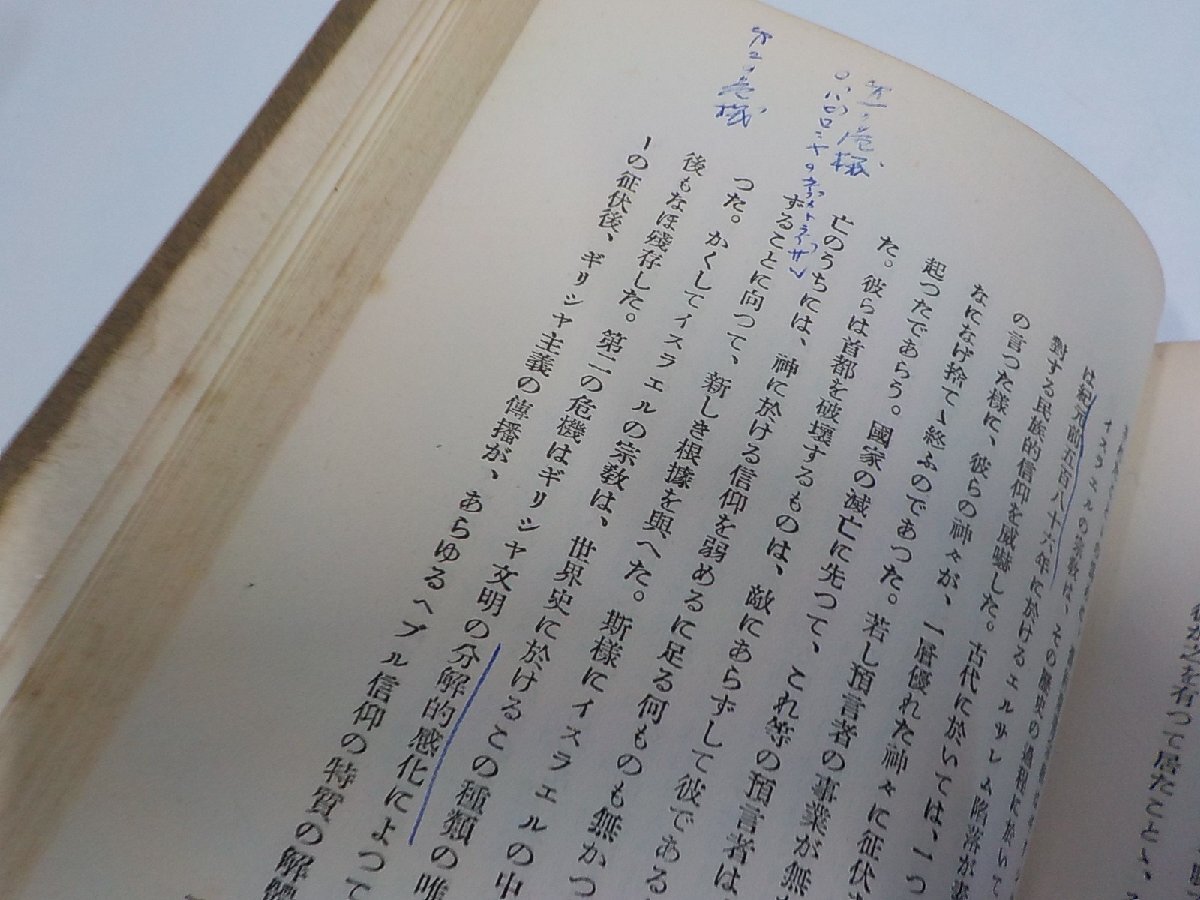 イスラエルの宗教は、その歴史の過程に於いて
は紀元前五百八十六年に於けるエルサレム陥落が
對する民族的信仰を威嚇した。古代に於いては、一つ
の言つた様に、彼らの神々が、一層優れた神々に征伏
なになげ捨てゝ終ふのであつた。若し預言者の事業が無
起つたであらう。國家の滅亡に先つて、これ等の預言者は
た。彼らは首都を破壞するものは、敵にあらずして彼である
亡のうちには、神に於ける信仰を弱めるに足る何ものも無かつ
ずることに向つて、新しき根據を與へた。斯様にイスラエルの中
つた。かくしてイスラエルの宗教は、世界史に於けるこの種類の唯
後もなほ殘存した。第二の危機はギリシヤ文明の分解的感化によつて
ーの征伏後、ギリシヤ主義の傳播が、あらゆるヘブル信仰の特質の解體
を有つて居たことゝ、
第一ノ危機
第二ノ危機